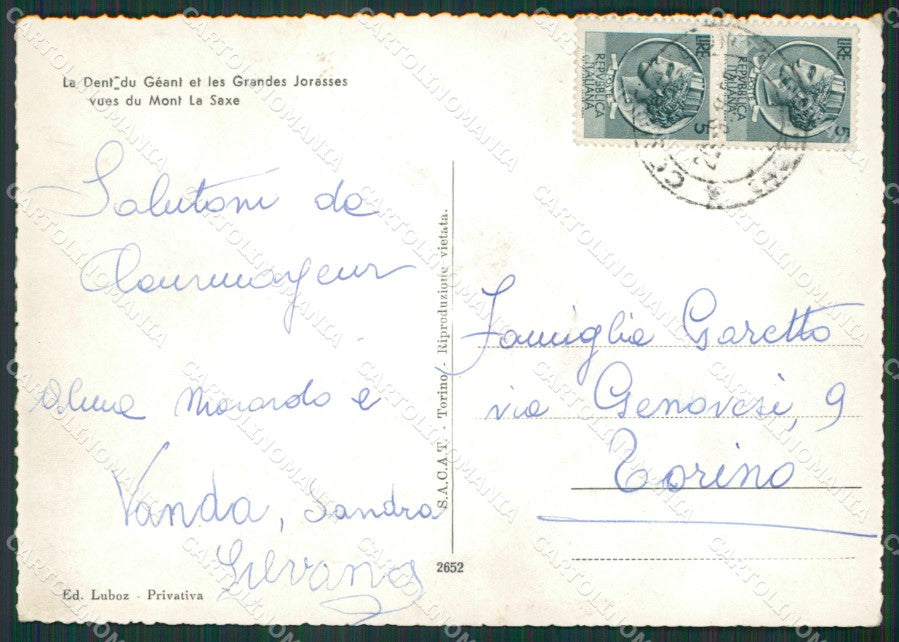 La Dent du Géant et les Grandes Jorasses
vues du Mont La Saxe
Saluti da
Courmayeur
Alma Morardo e
Vanda, Sandra
Silvana
Ed. Luboz - Privativa
S.A.C.A.T. - Torino - Riproduzione vietata.
2652
LIRE 5
REPVBBLICA
ITALIANA
POSTE
LIRE 5
REPVBBLICA
ITALIANA
POSTE
Famiglia Garetto
via Genovesi, 9
Torino
CARTOLINOMANIA